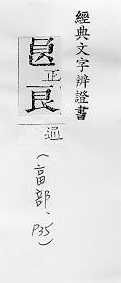 經典文字辨證書
正
良
通
(畗部、P35)